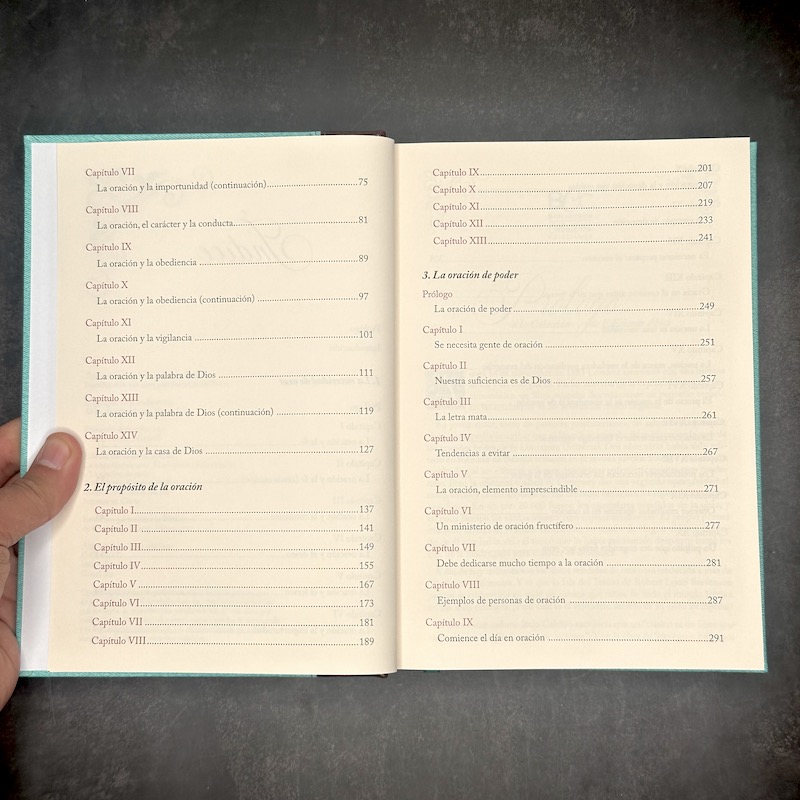 Capítulo VII
La oración y la importunidad (continuación)....................75
Capítulo VIII
La oración, el carácter y la conducta....................81
Capítulo IX
La oración y la obediencia ....................89
Capítulo X
La oración y la obediencia (continuación) ....................97
Capítulo XI
La oración y la vigilancia ....................101
Capítulo XII
La oración y la palabra de Dios ....................111
Capítulo XIII
La oración y la palabra de Dios (continuación) ....................119
Capítulo XIV
La oración y la casa de Dios ....................127
2. El propósito de la oración
Capítulo I....................137
Capítulo II ....................141
Capítulo III....................149
Capítulo IV....................155
Capítulo V ....................167
Capítulo VI....................173
Capítulo VII ....................181
Capítulo VIII....................189
Capítulo IX....................201
Capítulo X ....................207
Capítulo XI....................219
Capítulo XII ....................233
Capítulo XIII....................241
3. La oración de poder
Prólogo
La oración de poder....................249
Capítulo I
Se necesita gente de oración ....................251
Capítulo II
Nuestra suficiencia es de Dios ....................257
Capítulo III
La letra mata....................261
Capítulo IV
Tendencias a evitar ....................267
Capítulo V
La oración, elemento imprescindible ....................271
Capítulo VI
Un ministerio de oración fructífero ....................277
Capítulo VII
Debe dedicarse mucho tiempo a la oración ....................281
Capítulo VIII
Ejemplos de personas de oración ....................287
Capítulo IX
Comience el día en oración ....................291